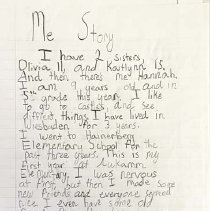 Me Story
I have 2 sisters
Olivia 11, and Kaitlynn 15.
And then there's me Hannah.
I am years old and in
5th grade this year. I like
to go to castles and see
diffrent things I have lived in
Wiesbaden for 3 years.
I went to Hainerberg
Elementary School for the
past three years. This is my
first year at Aukamm
Elementary. I was nervous
at first but then I made some
new friends and everyone
nice I even have some of